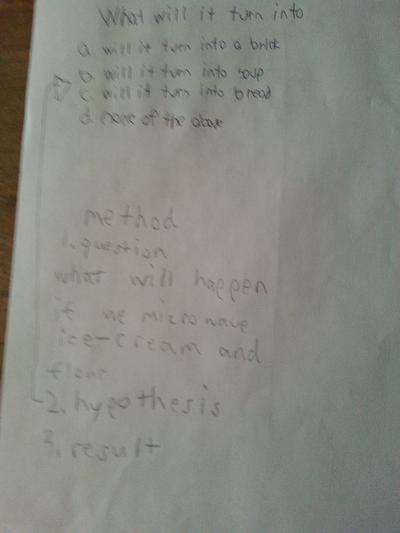 What will it turn into
a. will it turn into a brick
b. will it turn into soup
c. will it turn into bread
d. none of the above
method
1. question
what will happen
if we microwave
ice-cream and
flour
2. hypothesis
3. result